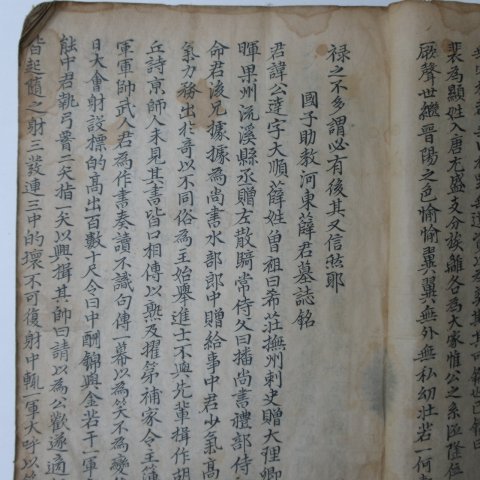 裴為顯姓入唐尤盛支分族離各為大家惟公之系德隆位
厥聲世繼晉陽之色愉愉翼翼無外無私幼壯若一何壽
祿之不多謂必有後其又信然耶
國子助教河東薛君墓誌銘
君諱公達字大順薛姓曾祖曰希莊撫州刺史贈大理卿
暉果州流溪縣丞贈左散騎常侍父曰播尚書禮部侍
命君後兄據據為尚書水部郎中贈給事中君少氣高
氣力務出於奇以不同俗為主始舉進士不與先輩揖作胡
丘詩京師人未見其書皆口相傳以熟及擢第補家令主簿
軍軍帥武人君為作書奏讀不識句傳一幕以為笑不為變
日大會射設標的高出百數十尺令曰中酬錦與金若干一軍
能中君執弓晉二矢指一矢以興揖其帥曰請以為公歡遂適
皆起隨之射三發連三中的壞不可復射中輒一軍大呼以笑